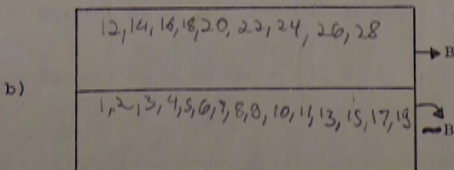 12, 14, 16, 18, 20, 22, 24, 26, 28
B
b)
1, 2, 3, 4, 5, 6, 7, 8, 9, 10, 11, 13, 15, 17, 19
~B